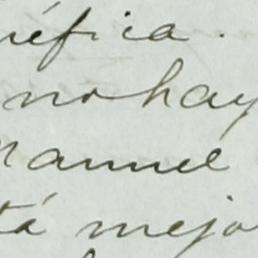 réfica.
no hay
Manuel
tá mejo